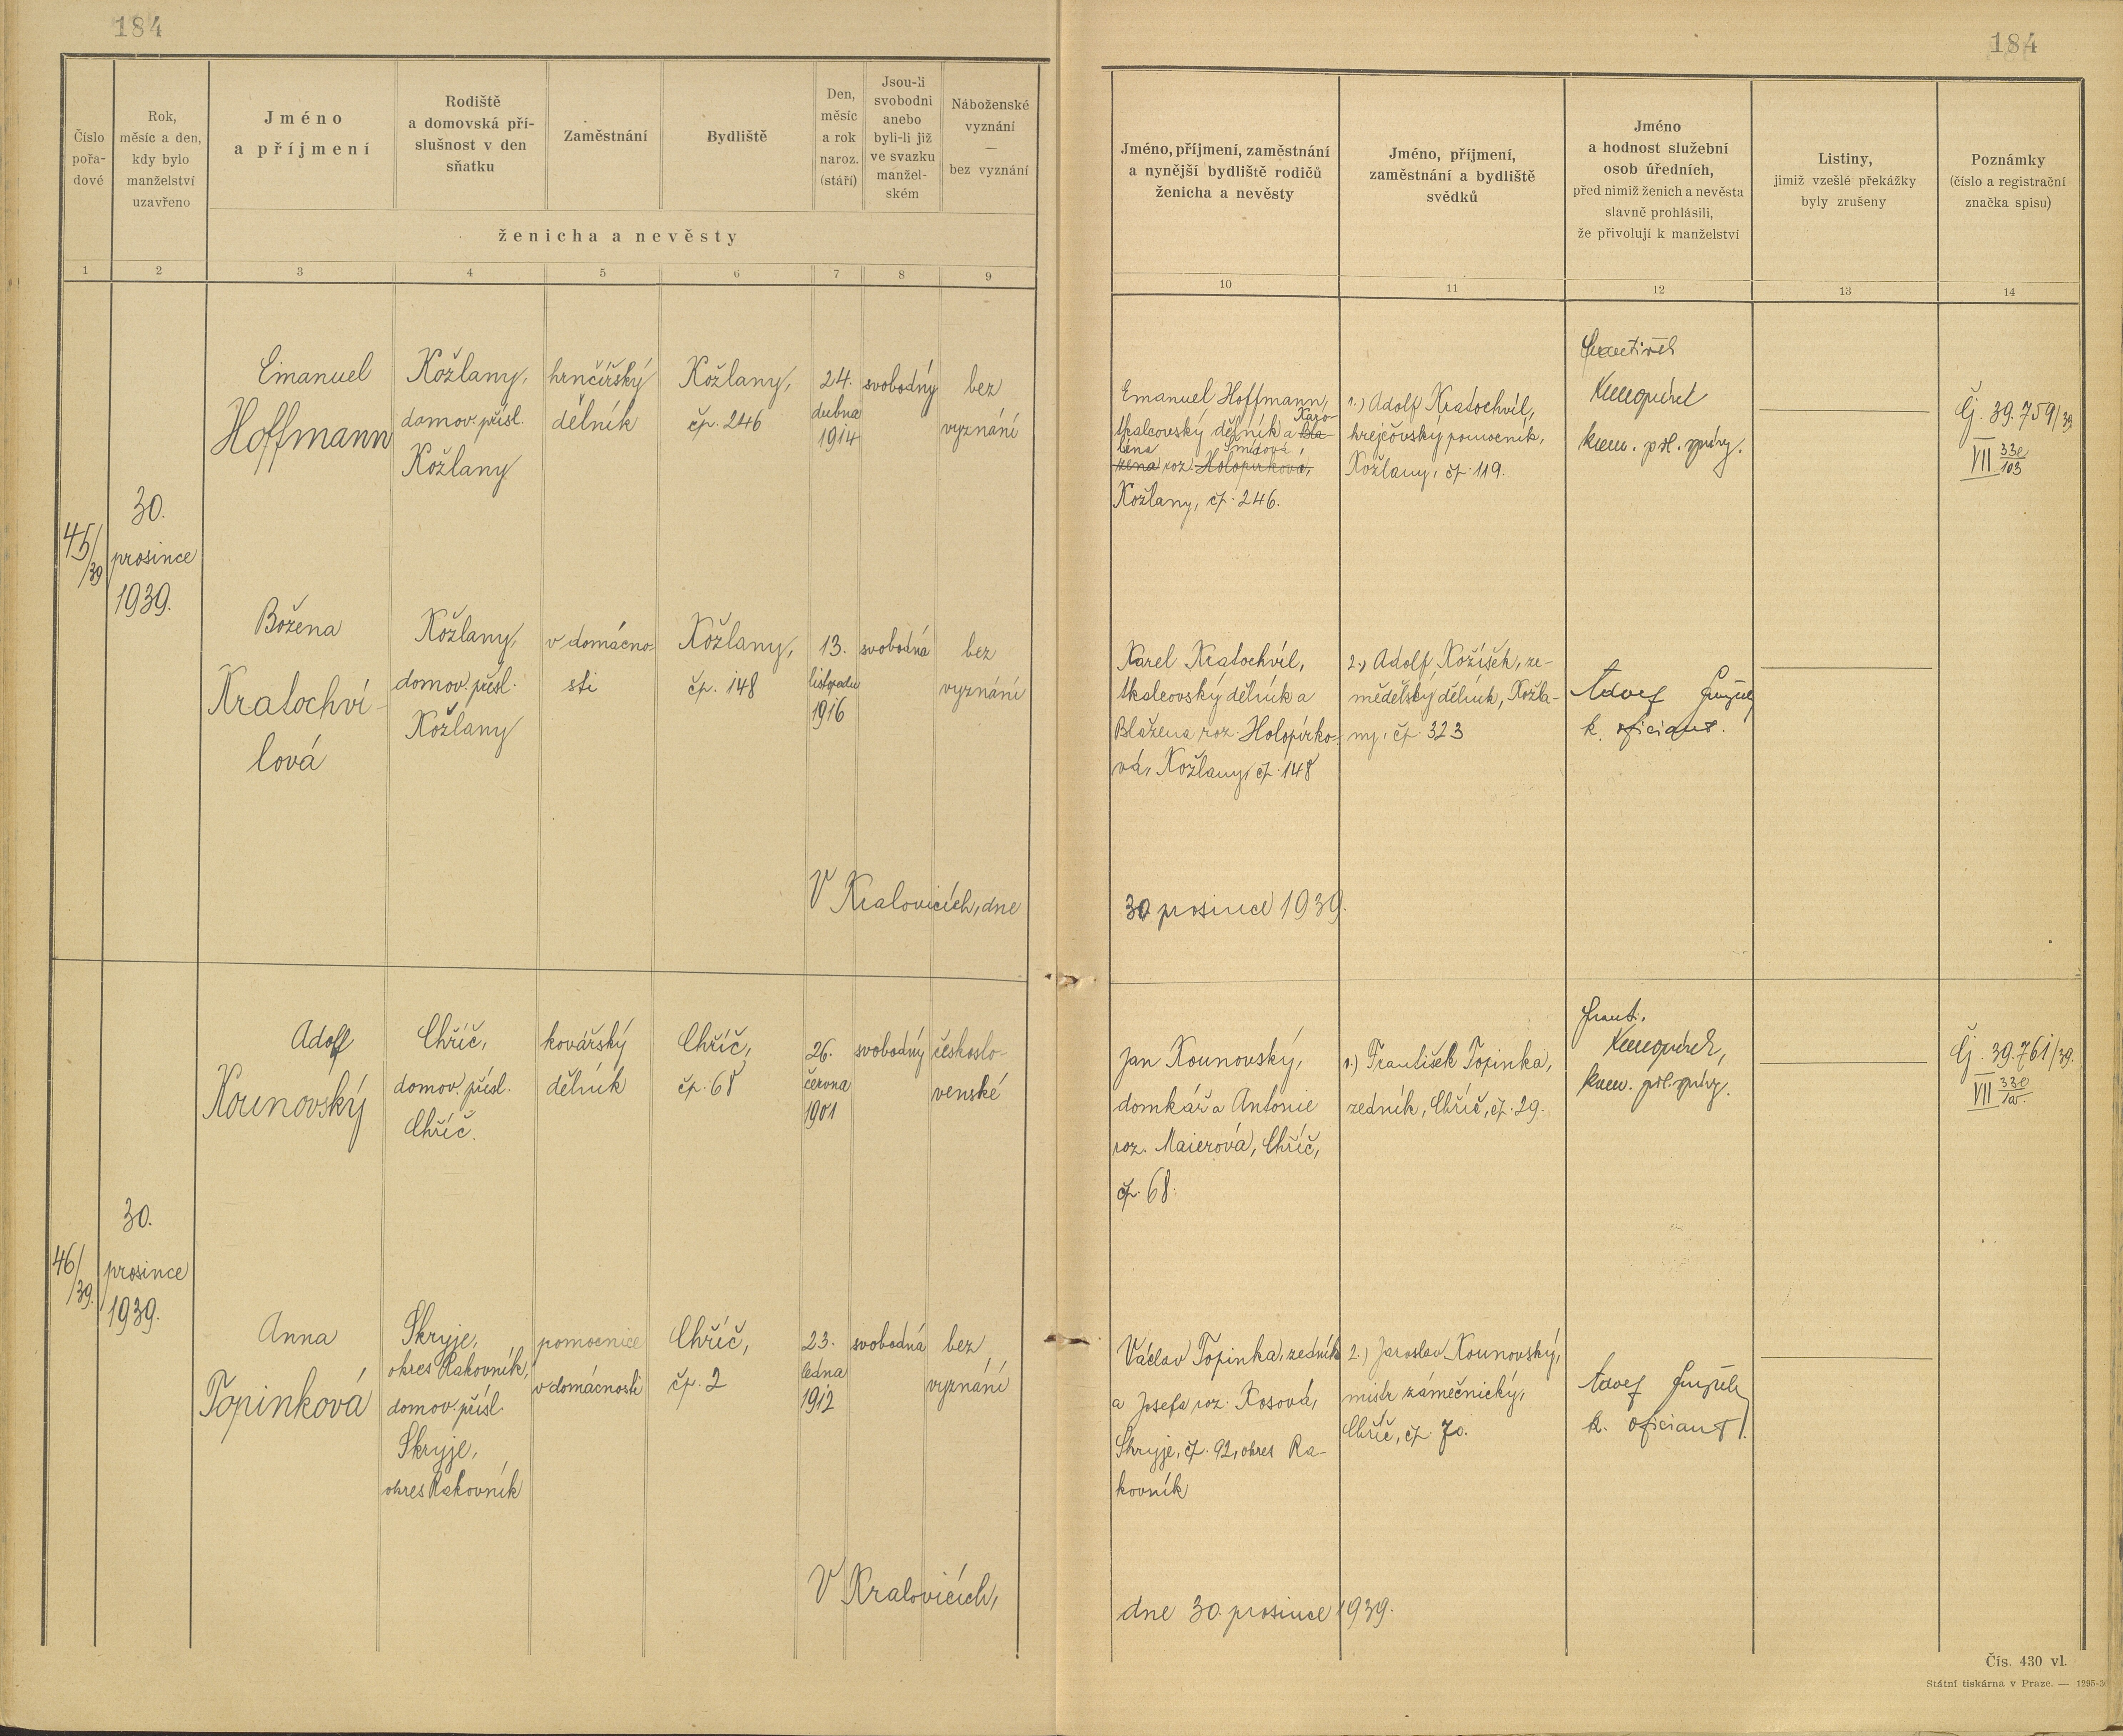 184
184
Číslo
pořa-
dové
Rok,
měsíc a den,
kdy bylo
manželství
uzavřeno
Jméno
a příjmení
Rodiště
a domovská pří-
slušnost v den
sňatku
Zaměstnání
Bydliště
Den,
měsíc
a rok
naroz.
(stáří)
Jsou-li
svobodni
anebo
byli-li již
ve svazku
manžel-
ském
Náboženské
vyznání
—
bez vyznání
ženicha a nevěsty
Jméno, příjmení, zaměstnání
a nynější bydliště rodičů
ženicha a nevěsty
Jméno, příjmení,
zaměstnání a bydliště
svědků
Jméno
a hodnost služební
osob úředních,
před nimiž ženich a nevěsta
slavně prohlásili,
že přivolují k manželství
Listiny,
jimiž vzešlé překážky
byly zrušeny
Poznámky
(číslo a registrační
značka spisu)
1 2 3 4 5 6 7 8 9
10 11 12 13 14
45/39
30.
prosince
1939.
Emanuel
Hoffmann
Kožlany,
domov. přísl.
Kožlany
hrnčířský
dělník
Kožlany,
čp. 246
24.
dubna
1914
svobodný
bez
vyznání
Emanuel Hoffmann,
tkalcovský dělník a Karo- Bla-
lina Šmídová,
žena roz. Holopírková,
Kožlany, čp. 246.
1.) Adolf Kratochvíl,
krejčovský pomocník,
Kožlany, čp. 119.
kom. pol. správy.
Čj. 39.759/39
VII 33e/103
Božena
Kratochví-
lová
Kožlany,
domov. přísl.
Kožlany
v domácno-
sti
Kožlany,
čp. 148
13.
listopadu
1916
svobodná
bez
vyznání
Karel Kratochvíl,
tkalcovský dělník a
Blažena roz. Holopírko-
vá, Kožlany, čp. 148
2.) Adolf Kožíšek, ze-
mědělský dělník, Kožla-
ny, čp. 323
Adolf
k. oficiant.
V Kralovicích, dne
30. prosince 1939.
46/39.
30.
prosince
1939.
Adolf
Kounovský
Chříč,
domov. přísl.
Chříč.
kovářský
dělník
Chříč,
čp. 68
26.
června
1901
svobodný
českoslo-
venské
Jan Kounovský,
domkář a Antonie
roz. Maierová, Chříč,
čp. 68.
1.) František Topinka,
zedník, Chříč, čp. 29.
Frant.
kom. pol. správy.
Čj. 39.761/39.
VII
Anna
Topinková
Skryje,
okres Rakovník,
domov. přísl.
Skryje,
okres Rakovník
pomocnice
v domácnosti
Chříč,
čp. 2
23.
ledna
1912
svobodná
bez
vyznání
Václav Topinka, zedník
a Josefa roz. Kosová,
Skryje, čp. 92, okres Ra-
kovník
2.) Jaroslav Kounovský,
mistr zámečnický,
Chříč, čp. 70.
Adolf
k. oficiant.
V Kralovicích,
dne 30. prosince 1939.
Čís. 430 vl.
Státní tiskárna v Praze. —